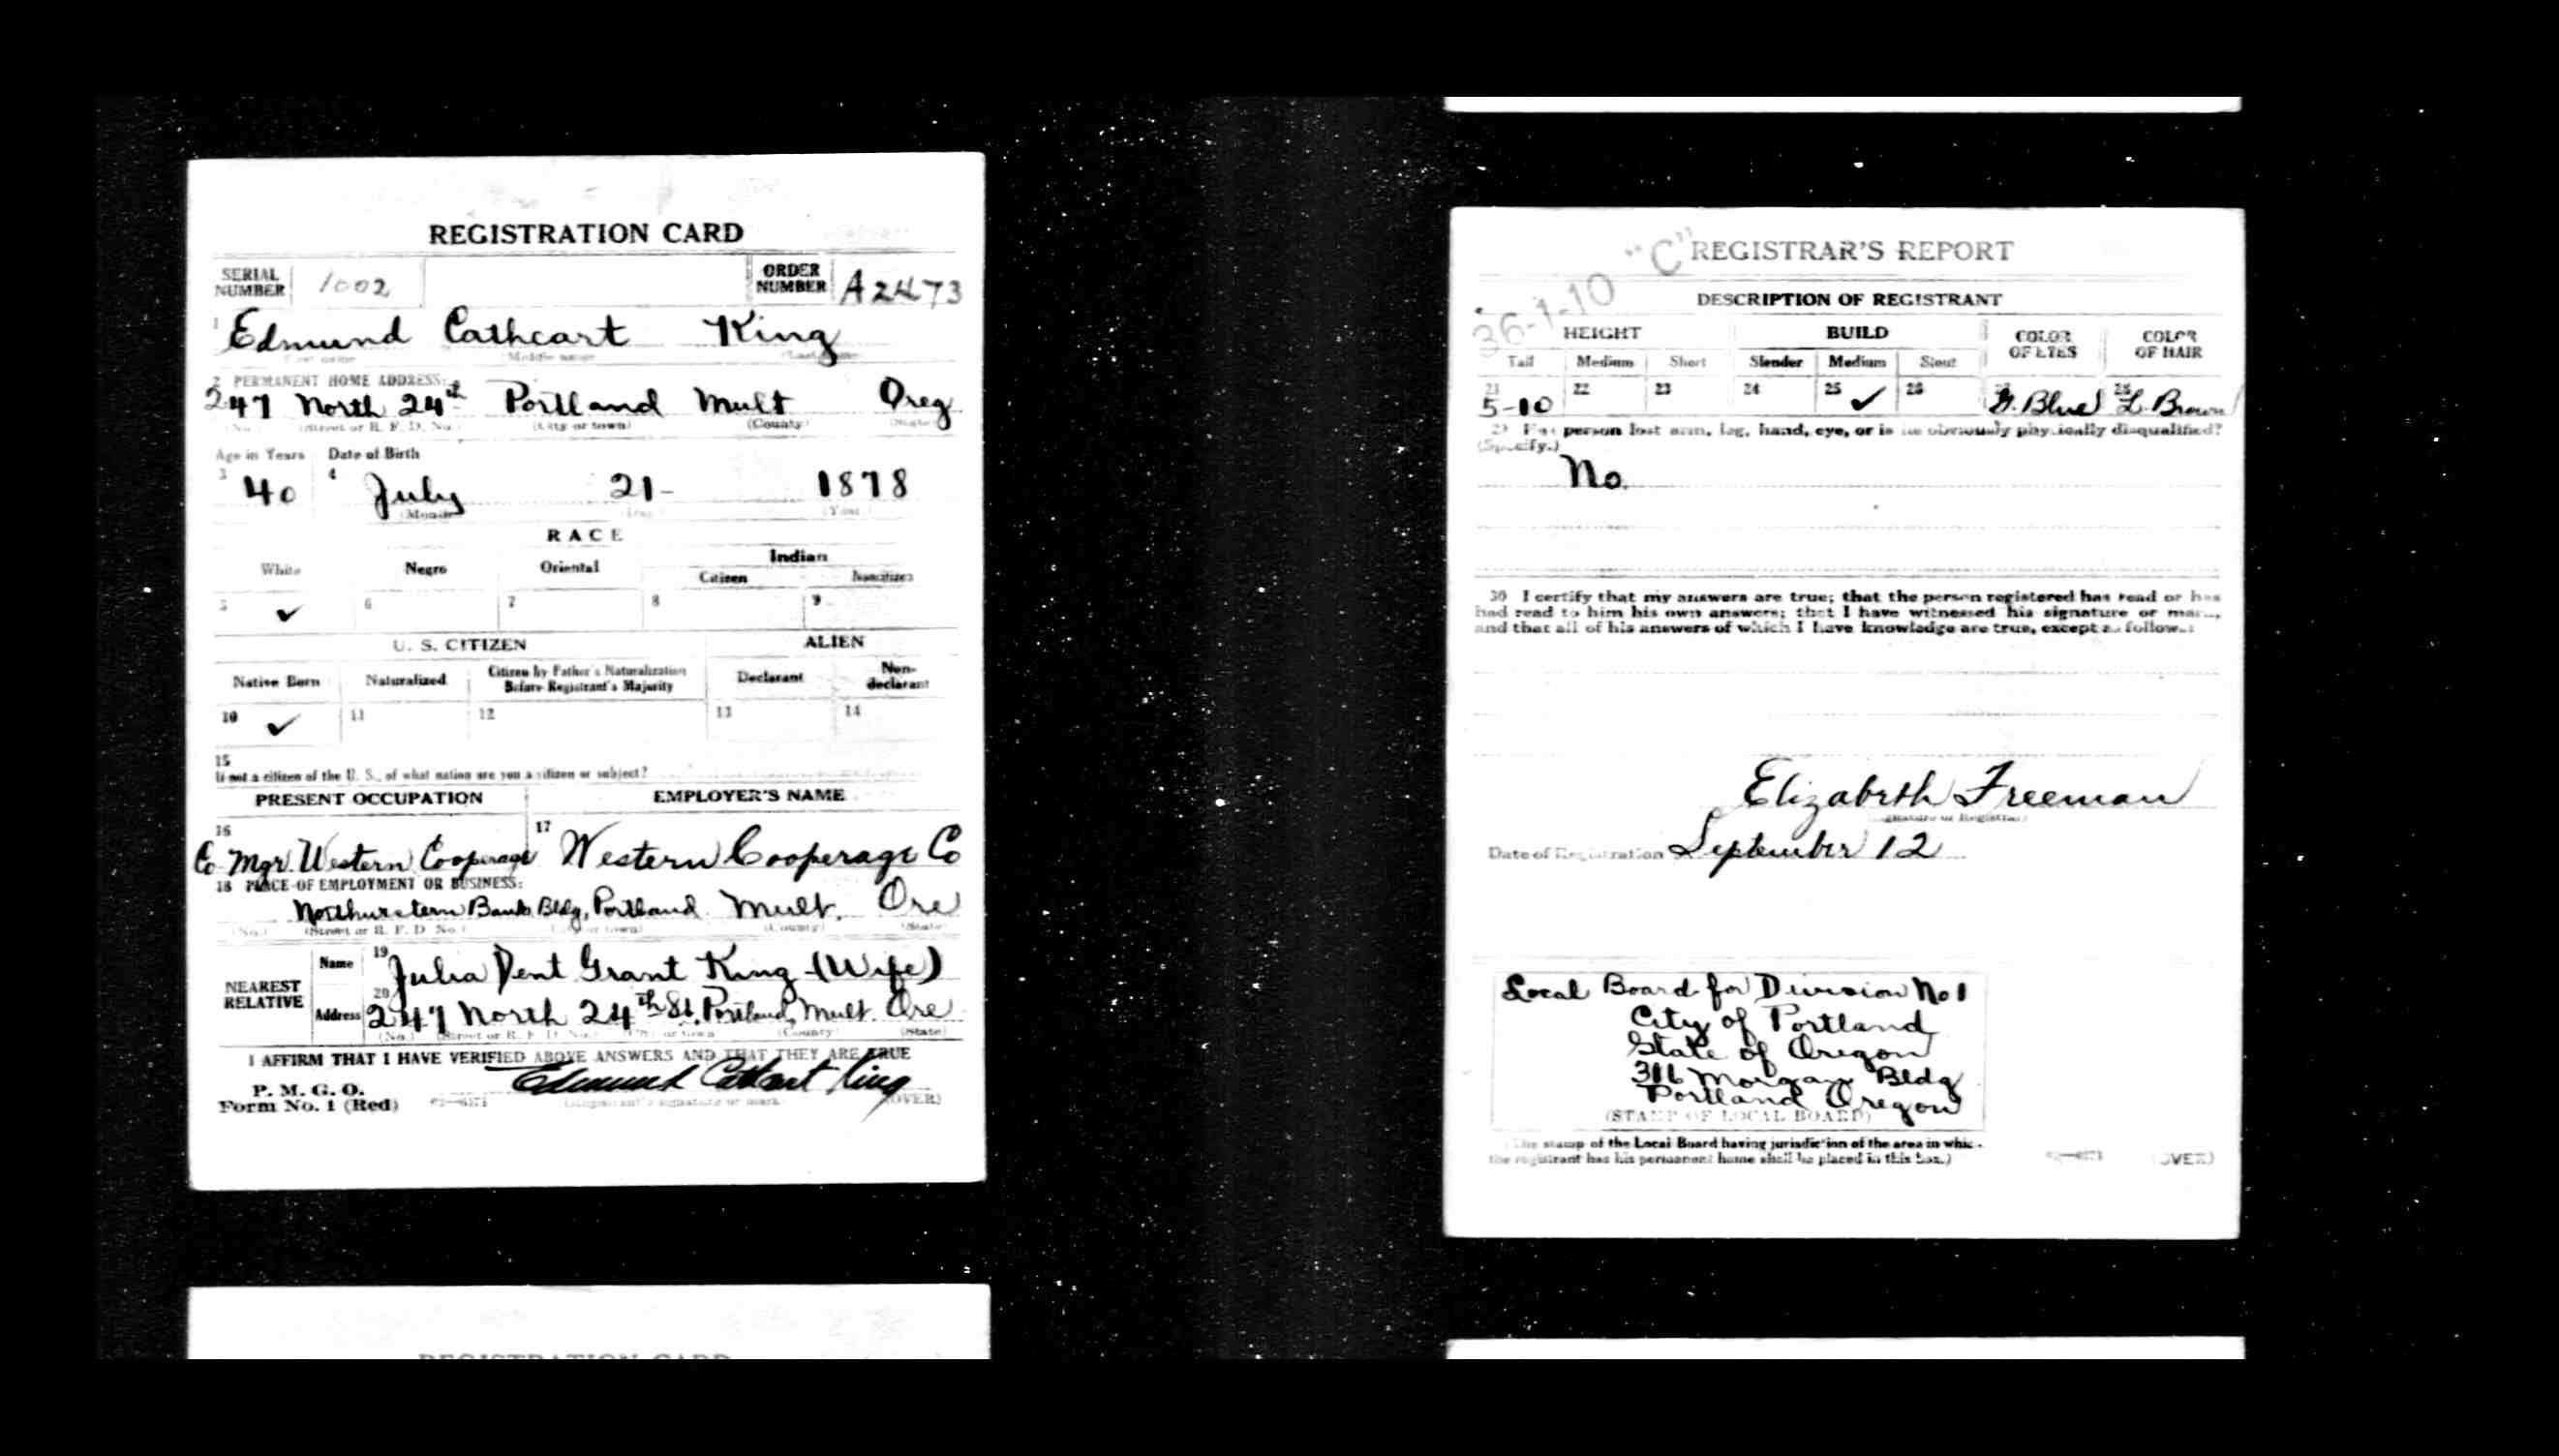 REGISTRATION CARD
SERIAL NUMBER 1002 ORDER NUMBER A2473
1 Edmund Cathcart King
Middle name
2 PERMANENT HOME ADDRESS:
247 North 24th Portland Mult Oreg
(No.) (Street or R. F. D. No.) (City or town) (County) (State)
Age in Years Date of Birth
3 40 4 July 21- 1878
(Month) (Day) (Year)
RACE
White Negro Oriental Indian
Citizen Noncitizen
5 ✓ 6 7 8 9
U. S. CITIZEN ALIEN
Native Born Naturalized Citizen by Father's Naturalization Before Registrant's Majority Declarant Non-declarant
10 ✓ 11 12 13 14
15
If not a citizen of the U. S., of what nation are you a citizen or subject?
PRESENT OCCUPATION EMPLOYER'S NAME
16 17
Co Mgr. Western Cooperage Western Cooperage Co
18 PLACE OF EMPLOYMENT OR BUSINESS:
Northwestern Bank Bldg, Portland Mult. Ore
(No.) (Street or R. F. D. No.) (City or town) (County) (State)
NEAREST RELATIVE Name 19 Julia Dent Grant King - (Wife)
Address 20 247 North 24th St. Portland, Mult. Ore
(No.) (Street or R. F. D. No.) (City or town) (County) (State)
I AFFIRM THAT I HAVE VERIFIED ABOVE ANSWERS AND THAT THEY ARE TRUE
P. M. G. O.
Form No. 1 (Red) Edmund Cathcart King
(Registrant's signature or mark) (OVER)
REGISTRATION CARD
36-1-10 "C"
REGISTRAR'S REPORT
DESCRIPTION OF REGISTRANT
HEIGHT BUILD COLOR OF EYES COLOR OF HAIR
Tall Medium Short Slender Medium Stout
21 5-10 22 23 24 25 ✓ 26 27 Blue 28 L. Brown
29 Has person lost arm, leg, hand, eye, or is he obviously physically disqualified?
(Specify.)
No.
30 I certify that my answers are true; that the person registered has read or has
had read to him his own answers; that I have witnessed his signature or mark,
and that all of his answers of which I have knowledge are true, except as follows:
Elizabeth Freeman
(Signature of Registrar)
Date of Registration September 12
Local Board for Division No 1
City of Portland
State of Oregon
316 Morgan Bldg
Portland Oregon
(STAMP OF LOCAL BOARD)
(The stamp of the Local Board having jurisdiction of the area in which
the registrant has his permanent home shall be placed in this box.)
(OVER)